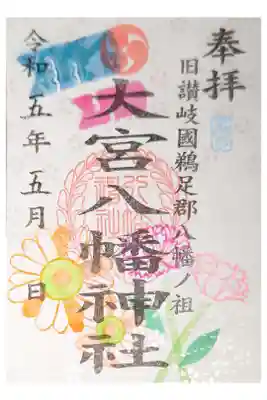 奉拝
旧讃岐國鵜足郡八幡ノ祖
大宮八幡神社
令和五年五月　日